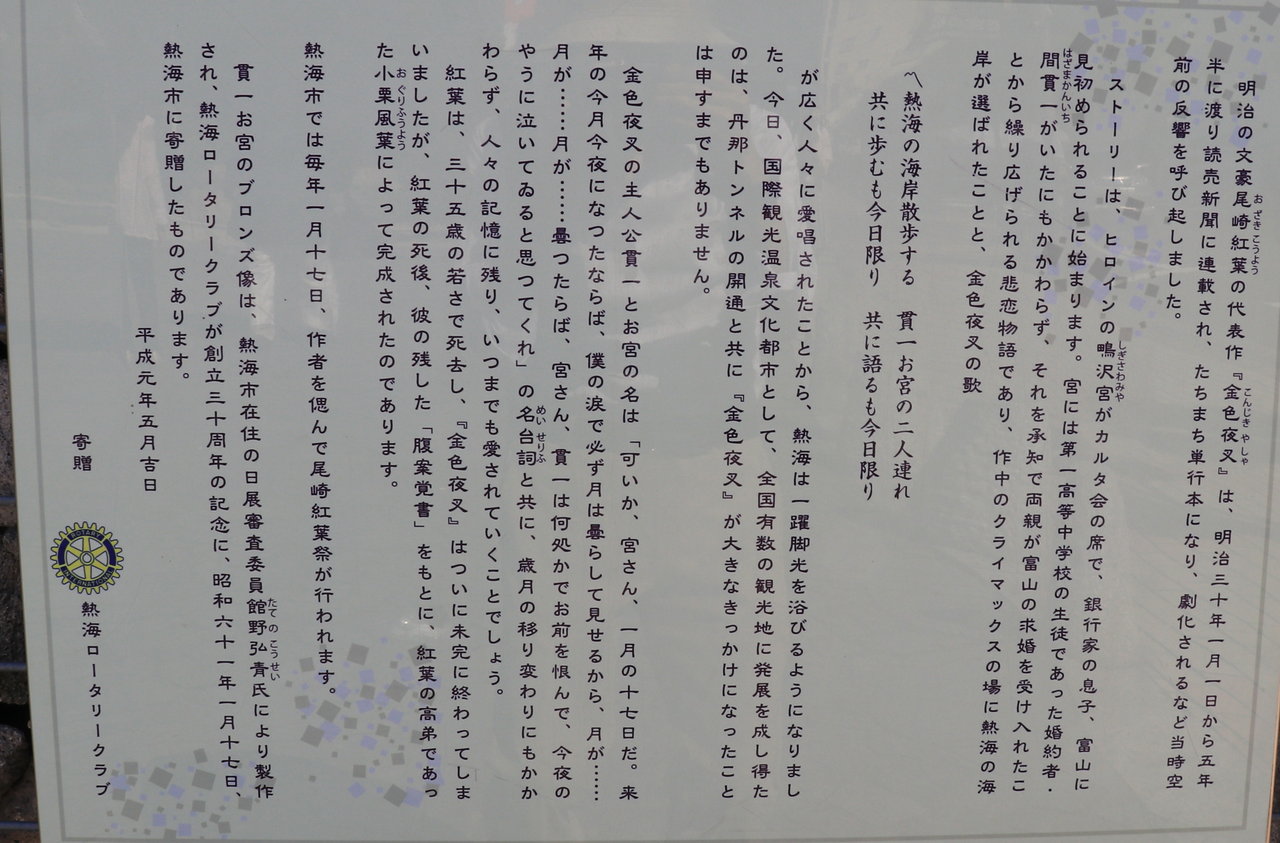 明治の文豪尾崎紅葉の代表作『金色夜叉』は、明治三十年一月一日から五年
半に渡り読売新聞に連載され、たちまち単行本になり、劇化されるなど当時空
前の反響を呼び起しました。
ストーリーは、ヒロインの鴫沢宮がカルタ会の席で、銀行家の息子、富山に
見初められることに始まります。宮には第一高等中学校の生徒であった婚約者・
間貫一がいたにもかかわらず、それを承知で両親が富山の求婚を受け入れたこ
とから繰り広げられる悲恋物語であり、作中のクライマックスの場に熱海の海
岸が選ばれたことと、金色夜叉の歌
〽熱海の海岸散歩する 貫一お宮の二人連れ
共に歩むも今日限り 共に語るも今日限り
が広く人々に愛唱されたことから、熱海は一躍脚光を浴びるようになりまし
た。今日、国際観光温泉文化都市として、全国有数の観光地に発展を成し得た
のは、丹那トンネルの開通と共に『金色夜叉』が大きなきっかけになったこと
は申すまでもありません。
金色夜叉の主人公貫一とお宮の名は「可いか、宮さん、一月の十七日だ。来
年の今月今夜になつたならば、僕の涙で必ず月は曇らして見せるから、月が……
月が……月が………曇つたらば、宮さん、貫一は何処かでお前を恨んで、今夜の
やうに泣いてゐると思つてくれ」の名台詞と共に、歳月の移り変わりにもかか
わらず、人々の記憶に残り、いつまでも愛されていくことでしょう。
紅葉は、三十五歳の若さで死去し、『金色夜叉』はついに未完に終わってしま
いましたが、紅葉の死後、彼の残した「腹案覚書」をもとに、紅葉の高弟であっ
た小栗風葉によって完成されたのであります。
熱海市では毎年一月十七日、作者を偲んで尾崎紅葉祭が行われます。
貫一お宮のブロンズ像は、熱海市在住の日展審査委員館野弘青氏により製作
され、熱海ロータリークラブが創立三十周年の記念に、昭和六十一年一月十七日、
熱海市に寄贈したものであります。
平成元年五月吉日
寄贈 熱海ロータリークラブ
ROTARY
INTERNATIONAL